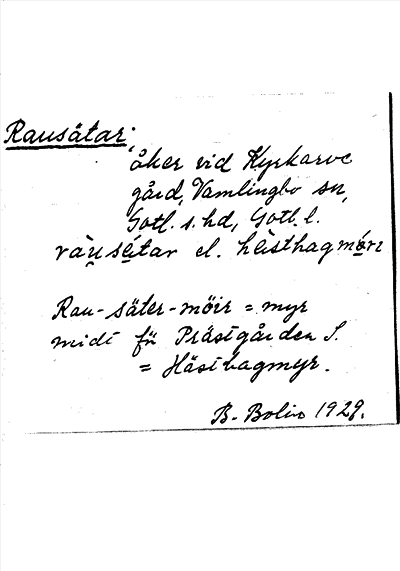 Rausätar;
åker vid Kyrkarve
gård, Vamlingbo sn,
Gotl. s. hd, Gotl. l.
ràu̯sétar el. hèsthagmórr
Rau-säter-möir = myr
midt för Prästgården S.
= Hästhagmyr.
B. Bolin 1929.